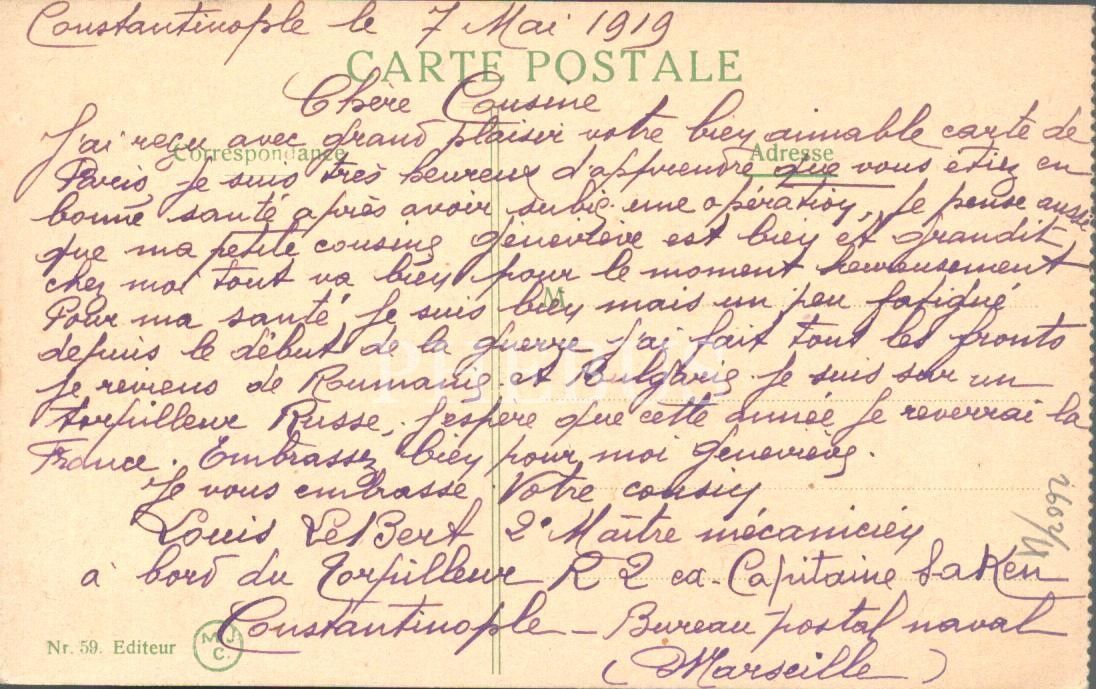 Constantinople le 7 Mai 1919
CARTE POSTALE
Chère Cousine
J'ai reçu avec grand plaisir votre bien aimable carte de
Correspondance
Adresse
Paris, je suis très heureux d'apprendre que vous étiez en
bonne santé après avoir subie une opération, je pense aussi
que ma petite cousine Geneviève est bien et grandit,
chez moi tout va bien pour le moment heureusement
M
Pour ma santé je suis bien mais un peu fatigué
depuis le début de la guerre j'ai fait tout les fronts
PHEBUS
je reviens de Roumanie et Bulgarie je suis sur un
torpilleur Russe, j'espère que cette année je reverrai la
France. Embrassez bien pour moi Geneviève.
Je vous embrasse Votre cousin
Louis LeBert 2e Maître mécanicien
à bord du Torpilleur R 2 ex-Capitaine SaKen
Constantinople – Bureau postal naval
(Marseille)
Nr. 59. Editeur
M J C.